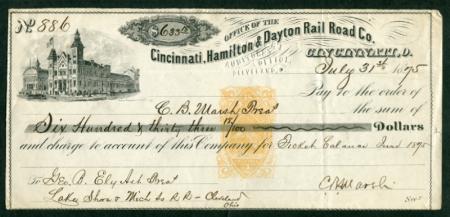 No 886
$633 12/100
OFFICE OF THE
Cincinnati, Hamilton & Dayton Rail Road Co.
CINCINNATI, O.
July 31st 1875
Pay to the order of
C. B. Marsh, Prest the sum of
Six Hundred & thirty three 12/100 Dollars
and charge to account of this Company for Ticket Balance June 1875
To Geo. B. Ely Prest
Lake Shore & Mich So RR - Cleveland
Ohio
Secy